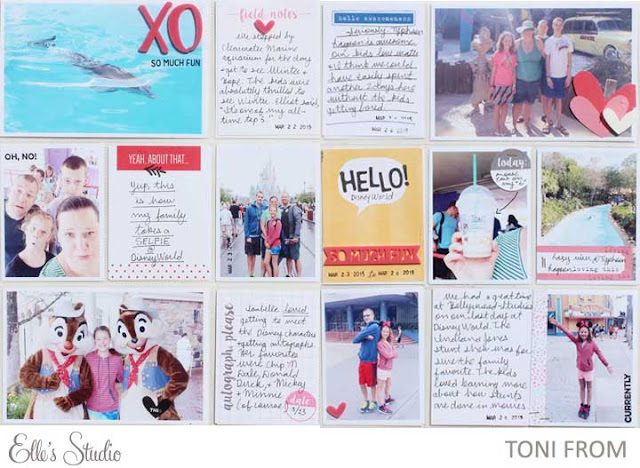 XO
SO MUCH FUN
field notes
We stopped by
Clearwater Marine
aquarium for the day
to see Winter +
Hope. The kids were
absolutely thrilled to
see Winter. Elliot said,
all-
time top 3."
MAR 22 2015
hello awesomeness
Seriously, Typhoon
Lagoon is awesome.
Our kids love water
+ I think we could
have easily spent
another 2 days here
without the kids
getting bored.
MAR 2015
OH, NO!
YEAH, ABOUT THAT...
Yup, this
is how
my family
takes a
SELFIE @
Disney World
MAR 23 2015
HELLO!
Disney World
SO MUCH FUN
MAR 23 2015 to MAR 26 2015
today:
lazy river @ Typhoon
Lagoon
loving this
autograph, please
Isabelle loved
getting to meet
the Disney characters
+ getting autographs.
Her favorites
were Chip n
Dale, Donald
Duck, + Mickey
+ Minnie
(of course)
date:
3/23
THE
We had a great time
at Hollywood Studios
on our last day at
Disney World. The
Indiana Jones
stunt show was for
sure the family
favorite. The kids
loved learning more
about how stunts
are done in movies.
CURRENTLY
Elle's Studio
TONI FROM